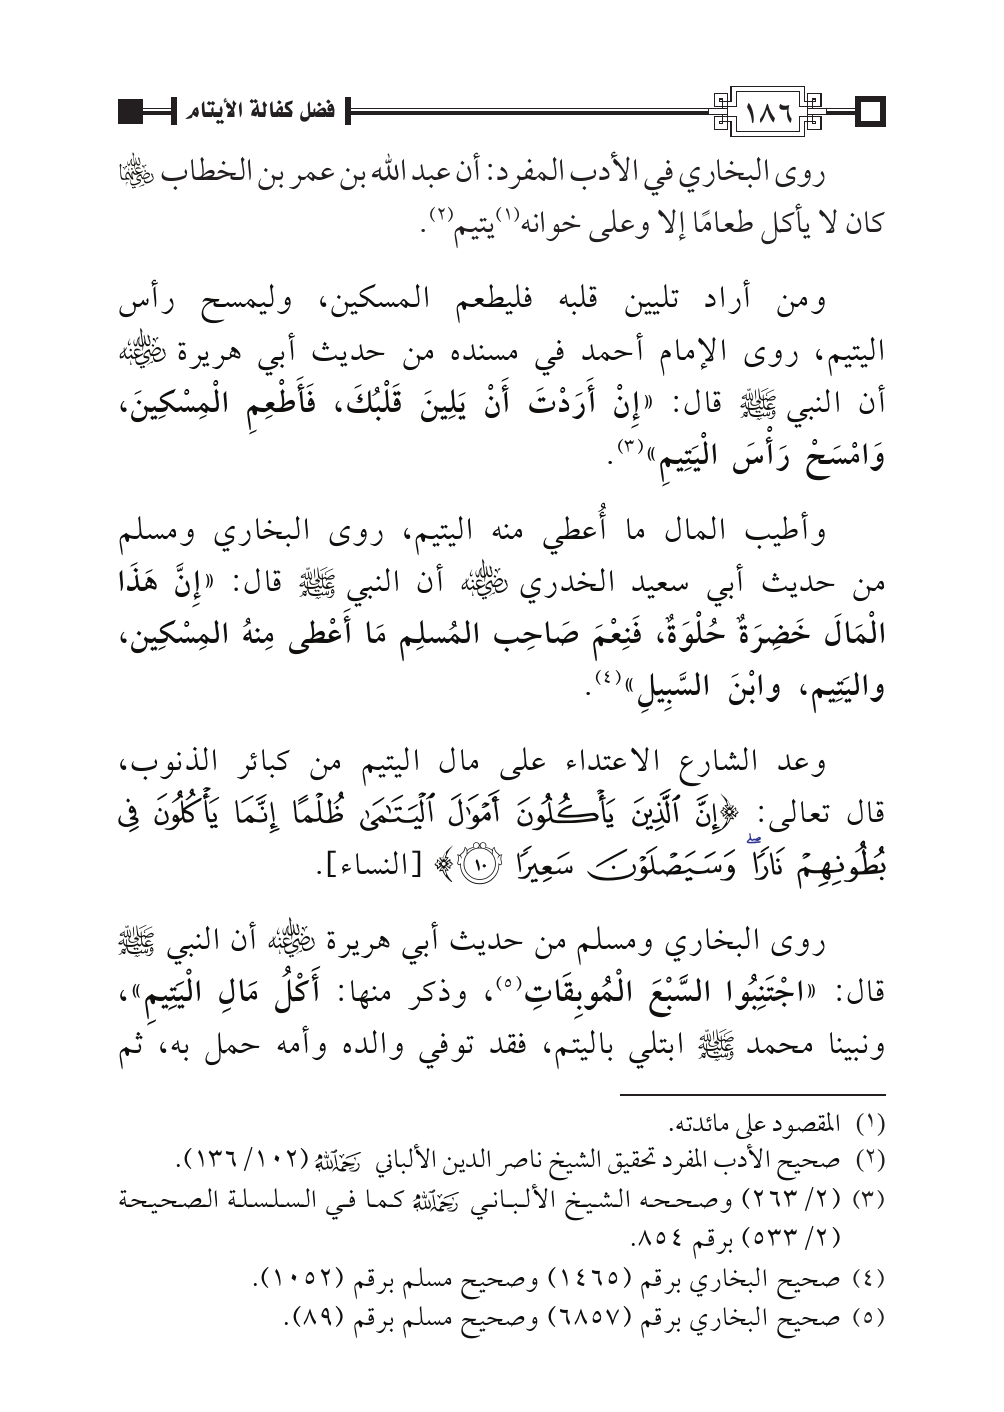 ١٨٦ فضل كفالة الأيتام
روى البخاري في الأدب المفرد: أن عبد الله بن عمر بن الخطاب رضي الله عنهما
كان لا يأكل طعامًا إلا وعلى خوانه(١) يتيم(٢).
ومن أراد تليين قلبه فليطعم المسكين، وليمسح رأس
اليتيم، روى الإمام أحمد في مسنده من حديث أبي هريرة رضي الله عنه
أن النبي ﷺ قال: «إِنْ أَرَدْتَ أَنْ يَلِينَ قَلْبُكَ، فَأَطْعِمِ الْمِسْكِينَ،
وَامْسَحْ رَأْسَ الْيَتِيمِ»(٣).
وأطيب المال ما أُعطي منه اليتيم، روى البخاري ومسلم
من حديث أبي سعيد الخدري رضي الله عنه أن النبي ﷺ قال: «إِنَّ هَذَا
الْمَالَ خَضِرَةٌ حُلْوَةٌ، فَنِعْمَ صَاحِب المُسلِم مَا أَعْطى مِنهُ المِسْكِين،
واليَتِيم، وابْنَ السَّبِيلِ»(٤).
وعد الشارع الاعتداء على مال اليتيم من كبائر الذنوب،
قال تعالى: ﴿إِنَّ ٱلَّذِينَ يَأْكُلُونَ أَمْوَٰلَ ٱلْيَتَٰمَىٰ ظُلْمًا إِنَّمَا يَأْكُلُونَ فِى
بُطُونِهِمْ نَارًا ۖ وَسَيَصْلَوْنَ سَعِيرًا ١٠﴾ [النساء].
روى البخاري ومسلم من حديث أبي هريرة رضي الله عنه أن النبي ﷺ
قال: «اجْتَنِبُوا السَّبْعَ الْمُوبِقَاتِ(٥)، وذكر منها: أَكْلُ مَالِ الْيَتِيمِ»،
ونبينا محمد ﷺ ابتلي باليتم، فقد توفي والده وأمه حمل به، ثم
(١) المقصود على مائدته.
(٢) صحيح الأدب المفرد تحقيق الشيخ ناصر الدين الألباني رحمه الله (١٠٢/ ١٣٦).
(٣) (٢/ ٢٦٣) وصححه الشيخ الألباني رحمه الله كما في السلسلة الصحيحة
(٢/ ٥٣٣) برقم ٨٥٤.
(٤) صحيح البخاري برقم (١٤٦٥) وصحيح مسلم برقم (١٠٥٢).
(٥) صحيح البخاري برقم (٦٨٥٧) وصحيح مسلم برقم (٨٩).